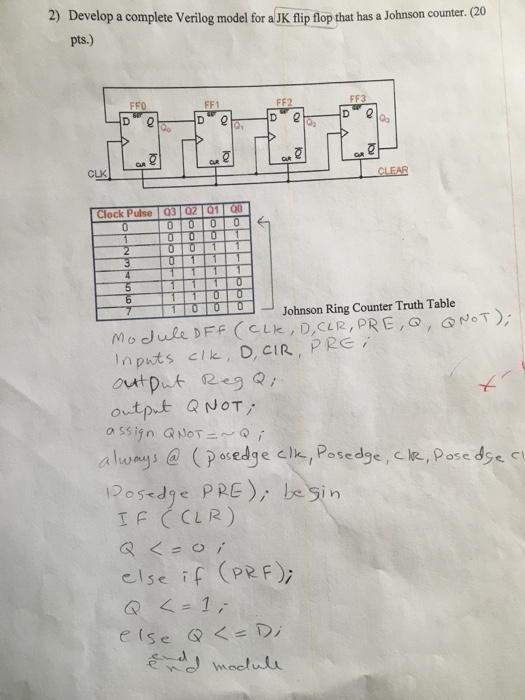 2) Develop a complete Verilog model for a JK flip flop that has a Johnson counter. (20
pts.)
FF0 FF1 FF2 FF3
D SET Q Q0 D SET Q Q1 D SET Q Q2 D SET Q Q3
CLR Q CLR Q CLR Q CLR Q
CLK CLEAR
Clock Pulse Q3 Q2 Q1 Q0
0 0 0 0 0
1 0 0 0 1
2 0 0 1 1
3 0 1 1 1
4 1 1 1 1
5 1 1 1 0
6 1 1 0 0
7 1 0 0 0
Johnson Ring Counter Truth Table
Module DFF (CLK, D, CLR, PRE, Q, QNOT);
Inputs clk, D, ClR, PRE;
output Reg Q;
output QNOT;
assign QNOT = ~Q;
always @ (posedge clk, Posedge, clR, Posedge cl
Posedge PRE); begin
IF (CLR)
Q <= 0;
else if (PRF);
Q <= 1;
else Q <= D;
end
end module